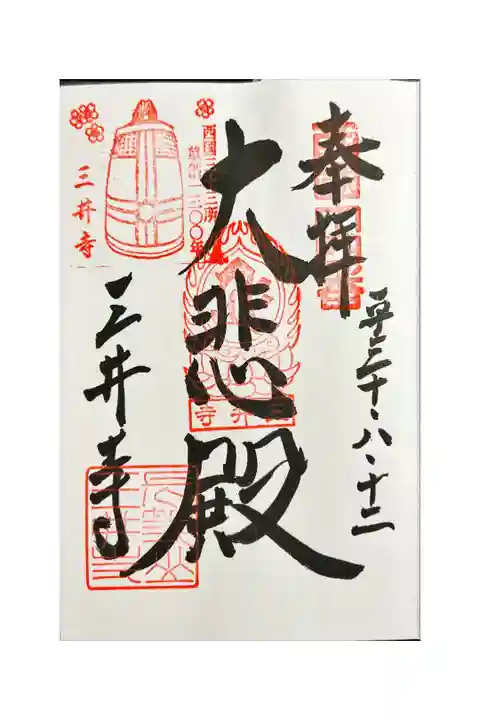 奉拝
平三十・八・十二
大悲殿
三井寺
西国三十三所
草創一三〇〇年
三井寺
三井寺